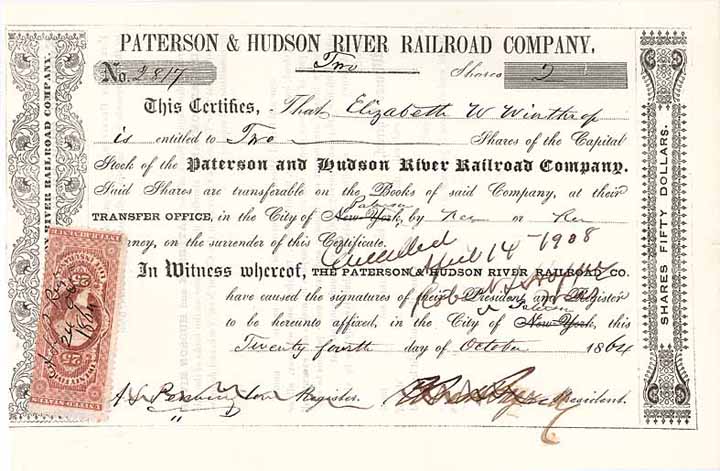 PATERSON & HUDSON RIVER RAILROAD COMPANY.
Two
No. 2817 Shares 2
This Certifies, That Elizabeth W Winthrop
is entitled to Two Shares of the Capital
Stock of the Paterson and Hudson River Railroad Company.
Said Shares are transferable on the Books of said Company, at their
Paterson
TRANSFER OFFICE, in the City of New-York, by her or her
rney, on the surrender of this Certificate.
Cancelled
April 14-1908
In Witness whereof, THE PATERSON & HUDSON RIVER RAILROAD CO.
have caused the signatures of their President and Register
Paterson
to be hereunto affixed, in the City of New-York, this
Twenty fourth day of October 1864
Register. President.
N RIVER RAILROAD COMPANY.
SHARES FIFTY DOLLARS.
25
25